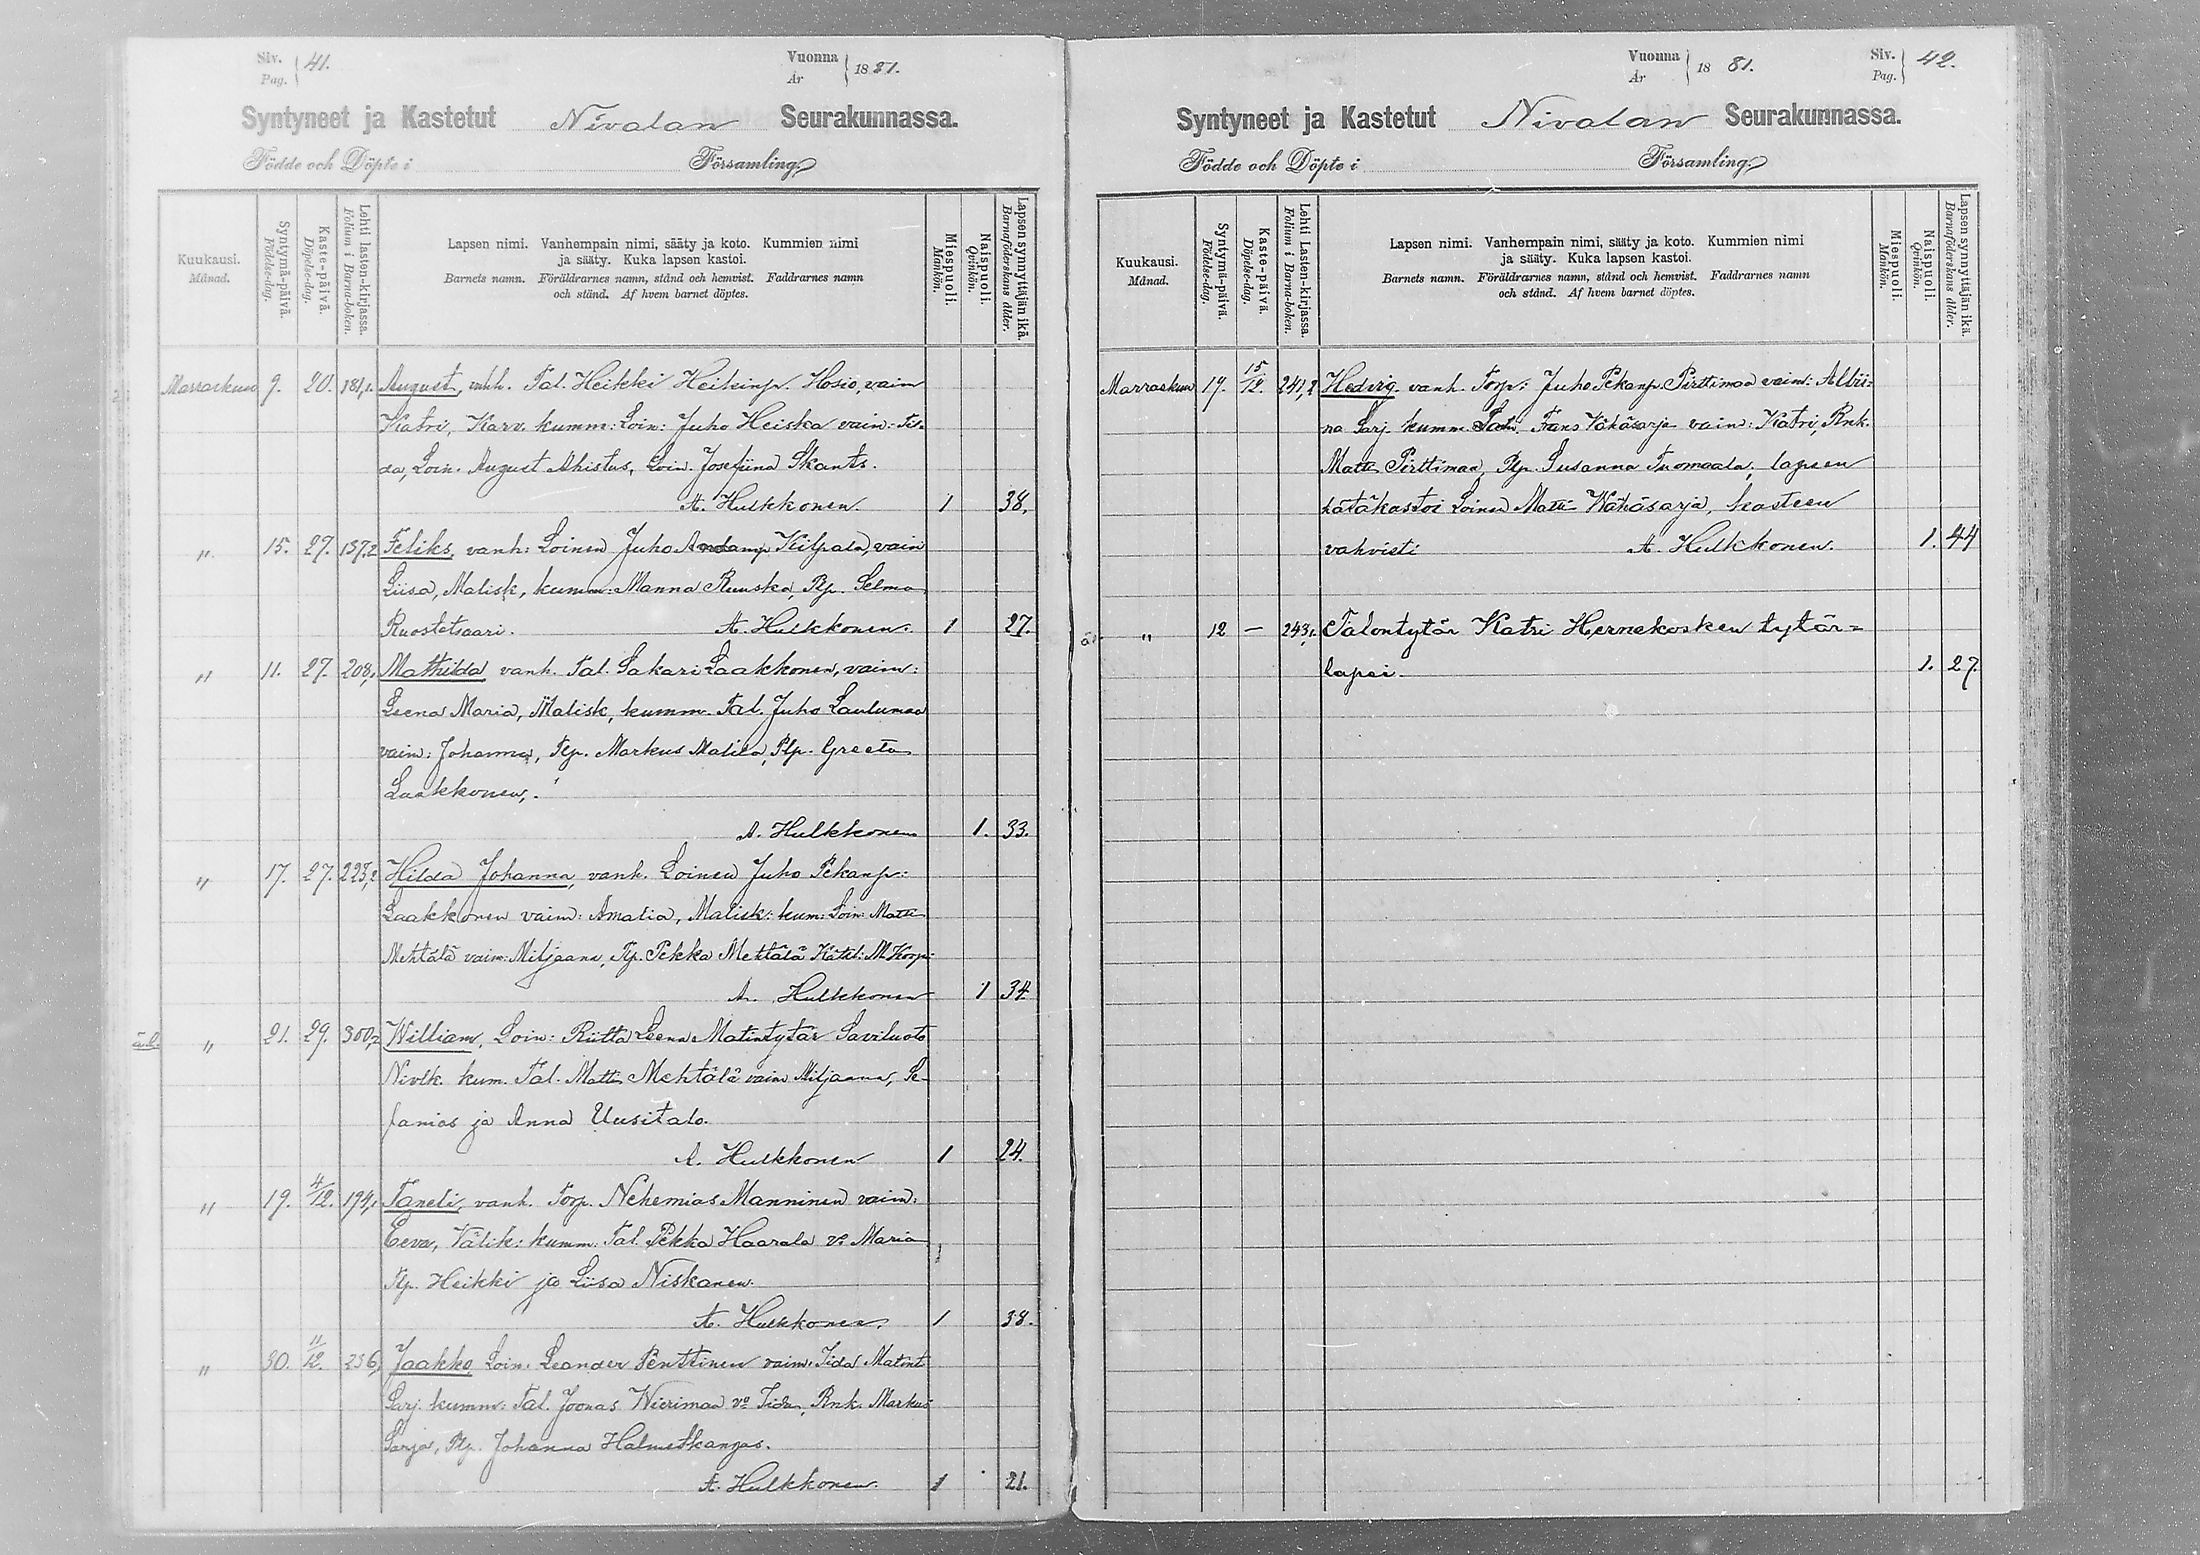 Siv. Pag. 41.
Vuonna År 1881.
Syntyneet ja Kastetut Nivalan Seurakunnassa.
Födde och Döpte i Församling.
Kuukausi. Månad.
Syntymä-päivä. Födelse-dag.
Kaste-päivä. Döpelse-dag.
Lehti lasten-kirjassa. Folium i Barna-boken.
Lapsen nimi. Vanhempain nimi, sääty ja koto. Kummien nimi
ja sääty. Kuka lapsen kastoi.
Barnets namn. Föräldrarnes namn, stånd och hemvist. Faddrarnes namn
och stånd. Af hvem barnet döptes.
Miespuoli. Mankön.
Naispuoli. Qvinkön.
Lapsen synnyttäjän ikä. Barnaföderskans ålder.
Marraskuu 9. 20. 181,1. August, vanh. Tal. Heikki Heikinp. Hosio, vaim
Katri, Karv. kumm: Loin: Juho Heiska vaim: Til-
da, Loin. August Ahistus, Loin. Josefiina Skants.
A. Hulkkonen. 1 38.
" 15. 27. 137,2 Feliks, vanh: Loinen Juho Kilpala, vaim
Liisa, Malisk, kumm: Manna Ruuska, Plp. Selma
Ruostetsaari. A. Hulkkonen. 1 27.
" 11. 27. 208, Mathilda vanh. Tal. Sakari Laakkonen, vaim:
Leena Maria, Malisk, kumm. Tal. Juho Laulumaa
vaim: Johanna, Tlp. Markus Malila, Plp. Greeta
Laakkonen.
A. Hulkkonen 1. 33.
" 17. 27. 223,2 Hilda Johanna, vanh. Loinen Juho Pekanp:
Laakkonen vaim: Amalia, Malisk: kum: Loin: Matti
Mehtälä vaim: Miljaana, Tp. Pekka Mehtälä
A. Hulkkonen 1 34.
ä.l. " 21. 29. 300,2 William, Loin: Riitta Leena Matintytär Saviluoto
Nivlk. kum. Tal. Matti Mehtälä vaim Miljaana, Se-
fanias ja Anna Uusitalo.
A. Hulkkonen 1 24.
" 19. 4/12. 194,1 Taneli, vanh. Torp. Nehemias Manninen vaim:
Eeva, Välik: kumm: Tal. Pekka Haarala vo Maria
Tlp. Heikki ja Liisa Niskanen.
A. Hulkkonen. 1 38.
" 30. 11/12. 236, Jaakko Loin: Leander Penttinen vaim: Iida Matint
Sarj. kumm: Tal. Joonas Wierimaa vo Iida, Rnk. Markus
Sarja, Plp. Johanna Halmetkangas.
A. Hulkkonen. 1 21.
Vuonna År 1881.
Siv. Pag. 42.
Syntyneet ja Kastetut Nivalan Seurakunnassa.
Födde och Döpte i Församling.
Kuukausi. Månad.
Syntymä-päivä. Födelse-dag.
Kaste-päivä. Döpelse-dag.
Lehti Lasten-kirjassa. Folium i Barna-boken.
Lapsen nimi. Vanhempain nimi, sääty ja koto. Kummien nimi
ja sääty. Kuka lapsen kastoi.
Barnets namn. Föräldrarnes namn, stånd och hemvist. Faddrarnes namn
och stånd. Af hvem barnet döptes.
Miespuoli. Mankön.
Naispuoli. Qvinkön.
Lapsen synnyttäjän ikä. Barnaföderskans ålder.
Marraskuu 19. 15/12. 241,2 Hedvig vanh. Torp: Juho Pekanp. Pirttimaa vaim: Albii-
na Sarj. kumm. Frans Vähäsarja vaim: Katri, Rnk.
Matti Pirttimaa, Plp. Susanna Tuomaala, lapsen
hätäkastoi Loinen Matti Wähäsarja, kasteen
vahvisti A. Hulkkonen. 1. 44
ä.l. " 12 — 243,1. Talontytär Katri Hernekosken tytär-
lapsi. 1. 27.